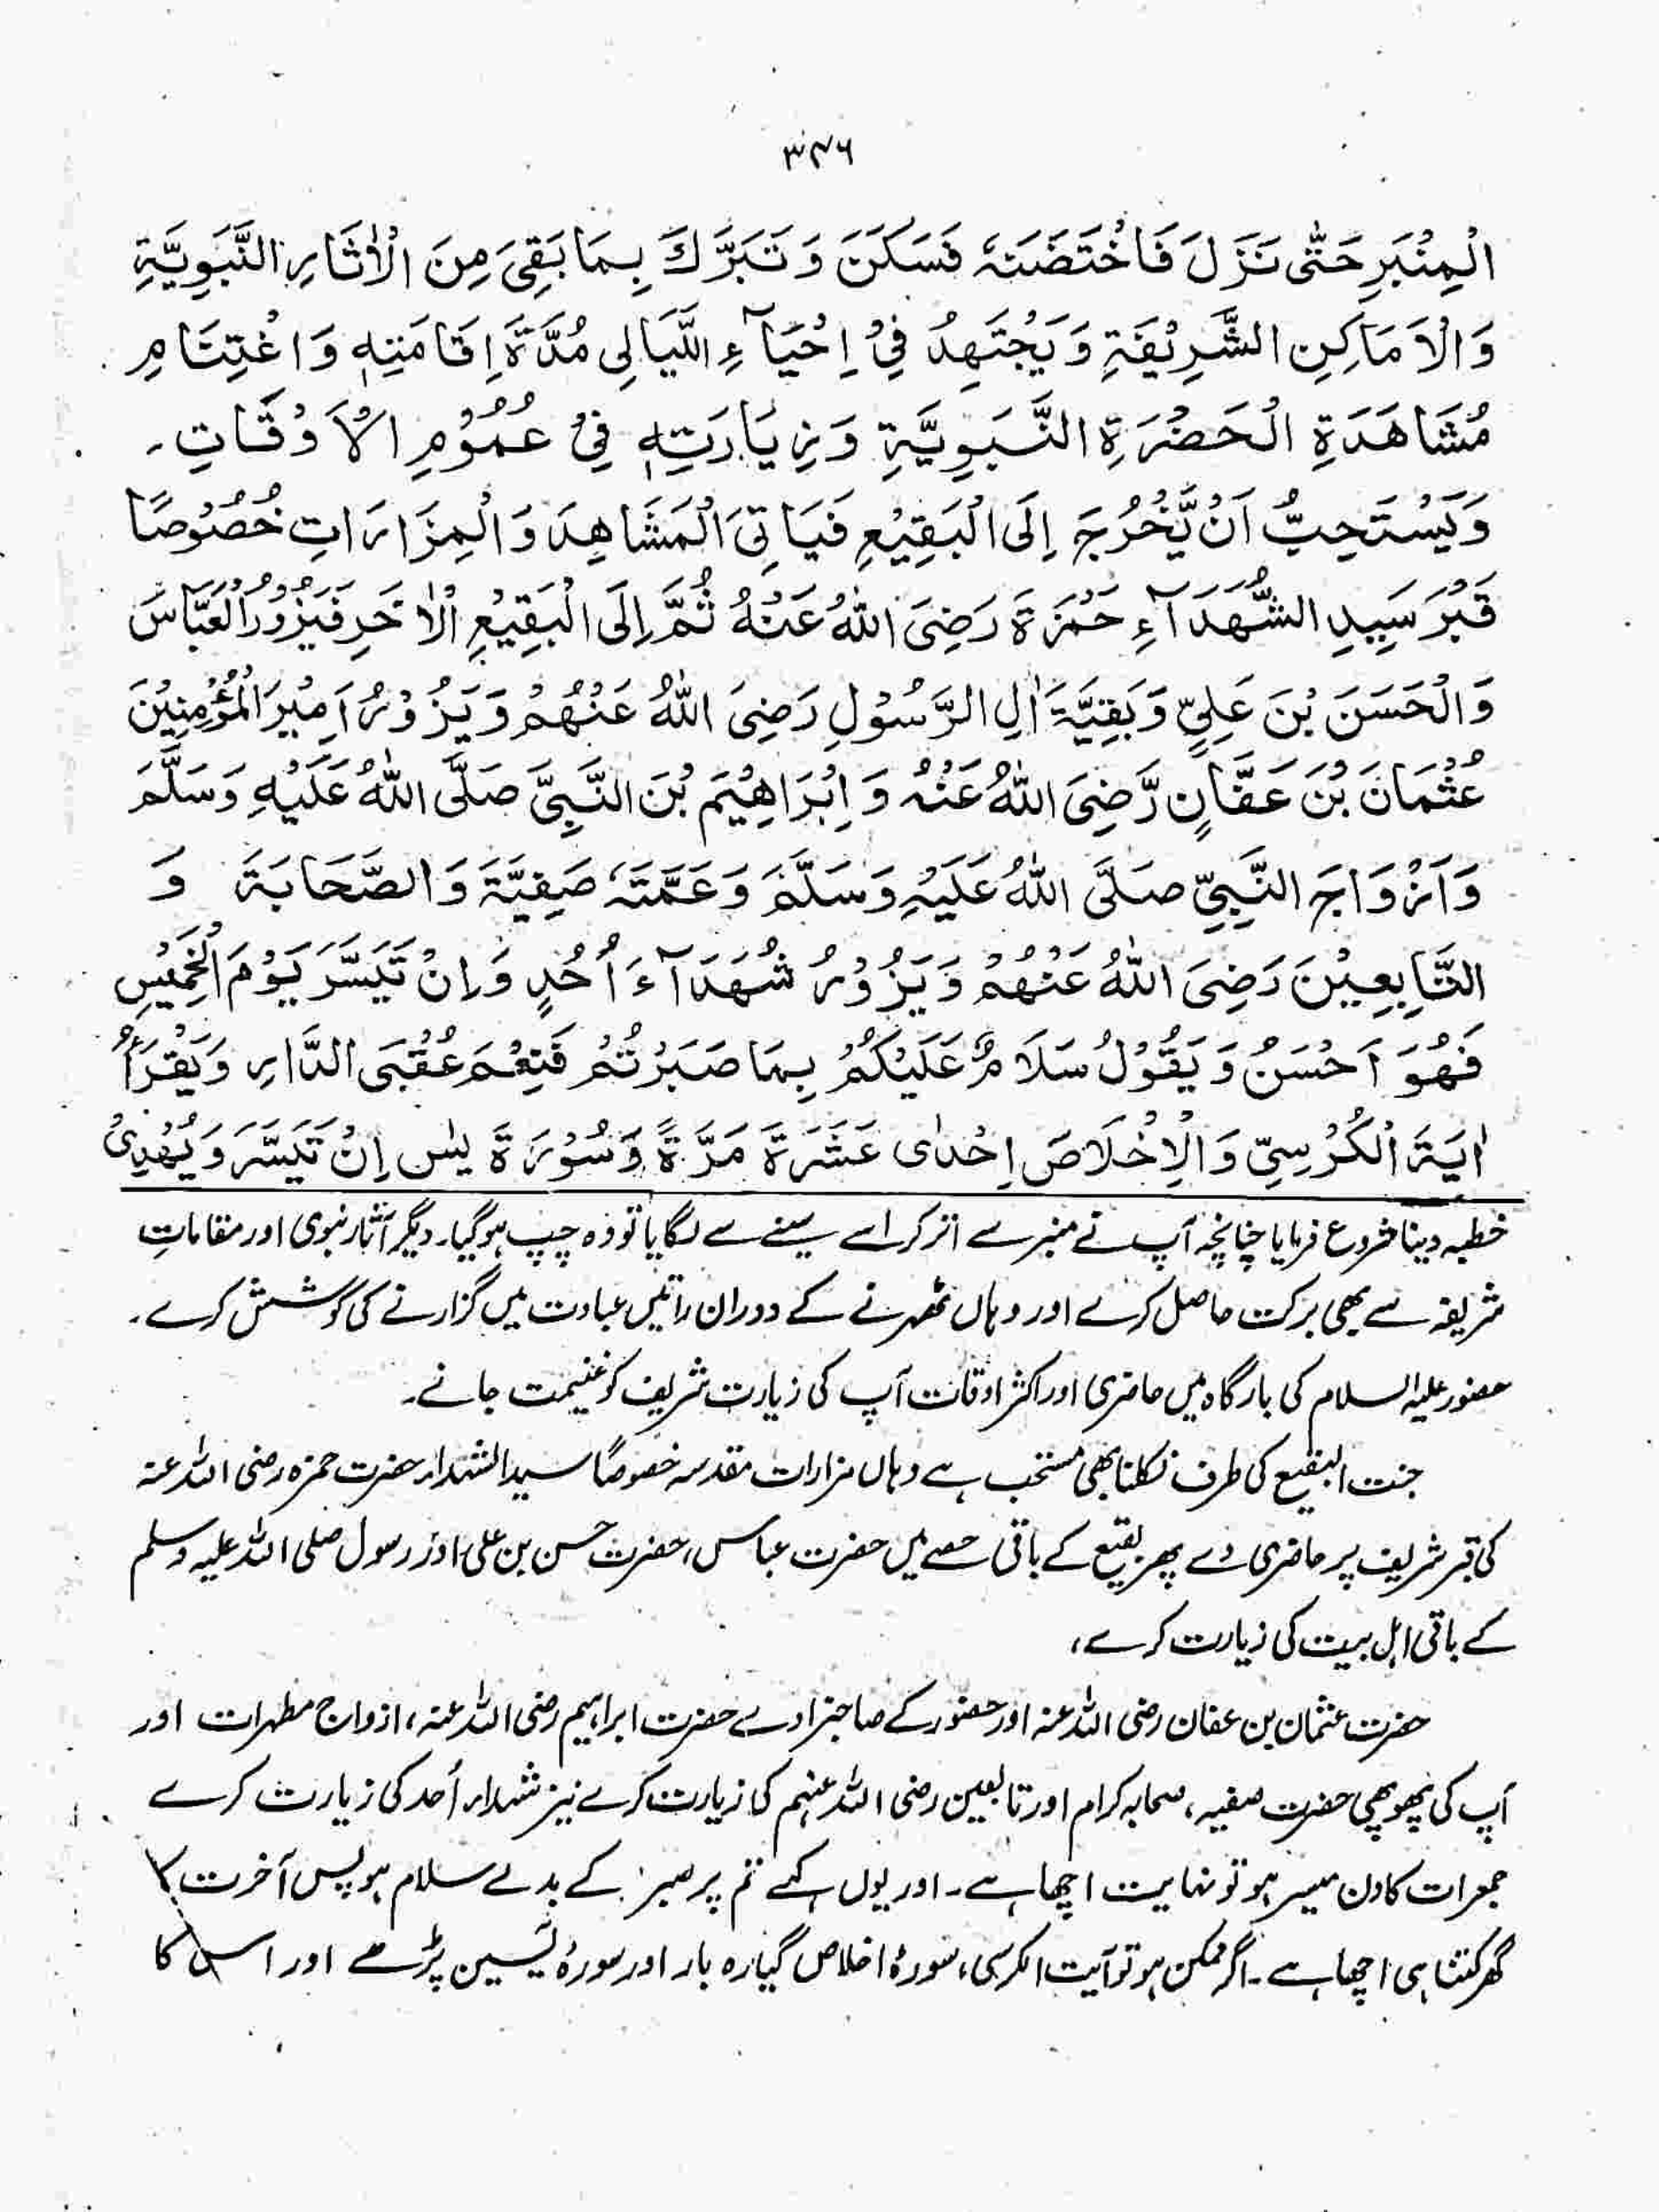 ۳۴۶
الْمِنْبَرِ حَتّٰى نَزَلَ فَاخْتَضَنَهٗ فَسَكَنَ وَتَبَرَّكَ بِمَا بَقِىَ مِنَ الْاٰثَارِ النَّبَوِيَّةِ
وَالْاَمَاكِنِ الشَّرِيْفَةِ وَيَجْتَهِدُ فِيْ اِحْيَآءِ اللَّيَالِى مُدَّةَ اِقَامَتِهٖ وَاغْتِنَامِ
مُشَاهَدَةِ الْحَضْرَةِ النَّبَوِيَّةِ وَزِيَارَتِهٖ فِيْ عُمُوْمِ الْاَوْقَاتِ۔
وَيَسْتَحِبُّ اَنْ يَّخْرُجَ اِلَى الْبَقِيْعِ فَيَاتِىَ الْمَشَاهِدَ وَالْمِزَارَاتِ خُصُوْصًا
قَبْرَ سَيِّدِ الشُّهَدَآءِ حَمْزَةَ رَضِىَ اللّٰهُ عَنْهُ ثُمَّ اِلَى الْبَقِيْعِ الْاٰخَرِ فَيَزُوْرُ الْعَبَّاسَ
وَالْحَسَنَ بْنَ عَلِيٍّ وَبَقِيَّةَ اٰلِ الرَّسُوْلِ رَضِىَ اللّٰهُ عَنْهُمْ وَيَزُوْرُ اَمِيْرَ الْمُؤْمِنِيْنَ
عُثْمَانَ بْنَ عَفَّانٍ رَّضِىَ اللّٰهُ عَنْهُ وَاِبْرَاهِيْمَ بْنَ النَّبِىِّ صَلَّى اللّٰهُ عَلَيْهِ وَسَلَّمَ
وَاَزْوَاجَ النَّبِيِّ صَلَّى اللّٰهُ عَلَيْهِ وَسَلَّمَ وَعَمَّتَهٗ صَفِيَّةَ وَالصَّحَابَةَ وَ
التَّابِعِيْنَ رَضِىَ اللّٰهُ عَنْهُمْ وَيَزُوْرُ شُهَدَآءَ اُحُدٍ وَاِنْ تَيَسَّرَ يَوْمَ الْخَمِيْسِ
فَهُوَ اَحْسَنُ وَيَقُوْلُ سَلَامٌ عَلَيْكُمْ بِمَا صَبَرْتُمْ فَنِعْمَ عُقْبَى الدَّارِ وَيَقْرَأُ
اٰيَةَ الْكُرْسِيِّ وَالْاِخْلَاصَ اِحْدٰى عَشَرَةَ مَرَّةً وَسُوْرَةَ يٰسٓ اِنْ تَيَسَّرَ وَيُهْدِىْ
خطبہ دینا شروع فرمایا چنانچہ آپ نے منبر سے اتر کر اسے سینے سے لگایا تو وہ چپ ہوگیا۔ دیگر آثار نبوی اور مقاماتِ
شریفہ سے بھی برکت حاصل کرے اور وہاں ٹھہرنے کے دوران راتیں عبادت میں گزارنے کی کوشش کرے۔
حضور علیہ السلام کی بارگاہ میں حاضری اور اکثر اوقات آپ کی زیارت شریف کو غنیمت جانے۔
جنت البقیع کی طرف نکلنا بھی مستحب ہے وہاں مزارات مقدسہ خصوصًا سید الشہداء حضرت حمزہ رضی اللہ عنہ
کی قبر شریف پر حاضری دے پھر بقیع کے باقی حصے میں حضرت عباس، حضرت حسن بن علی اور رسول صلی اللہ علیہ وسلم
کے باقی اہل بیت کی زیارت کرے،
حضرت عثمان بن عفان رضی اللہ عنہ اور حضور کے صاحبزادے حضرت ابراہیم رضی اللہ عنہ، ازواج مطہرات اور
آپ کی پھوپھی حضرت صفیہ، صحابہ کرام اور تابعین رضی اللہ عنہم کی زیارت کرے نیز شہداء اُحد کی زیارت کرے
جمعرات کا دن میسر ہو تو نہایت اچھا ہے۔ اور یوں کہے تم پر صبر کے بدلے سلام ہو پس آخرت کا
گھر کتنا ہی اچھا ہے۔ اگر ممکن ہو تو آیت الکرسی، سورۂ اخلاص گیارہ بار اور سورۂ یٰسین پڑھے اور اس کا